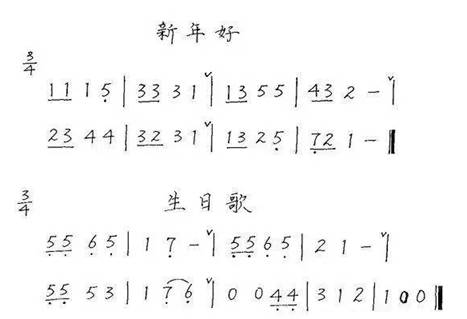 新年好
3/4
1 1 1 5̣ | 3 3 3 1 ˅| 1 3 5 5 | 4 3 2 - ˅|
2 3 4 4 | 3 2 3 1 ˅| 1 3 2 5̣ | 7̣ 2 1 - ‖
生日歌
3/4
5̣ 5̣ 6̣ 5̣ | 1 7̣ - ˅| 5̣ 5̣ 6̣ 5̣ | 2 1 - ˅|
5̣ 5̣ 5 3 | 1 7̣ 6̣ ˅| 0 0 4̣ 4̣ | 3 1 2 | 1 0 0 ‖